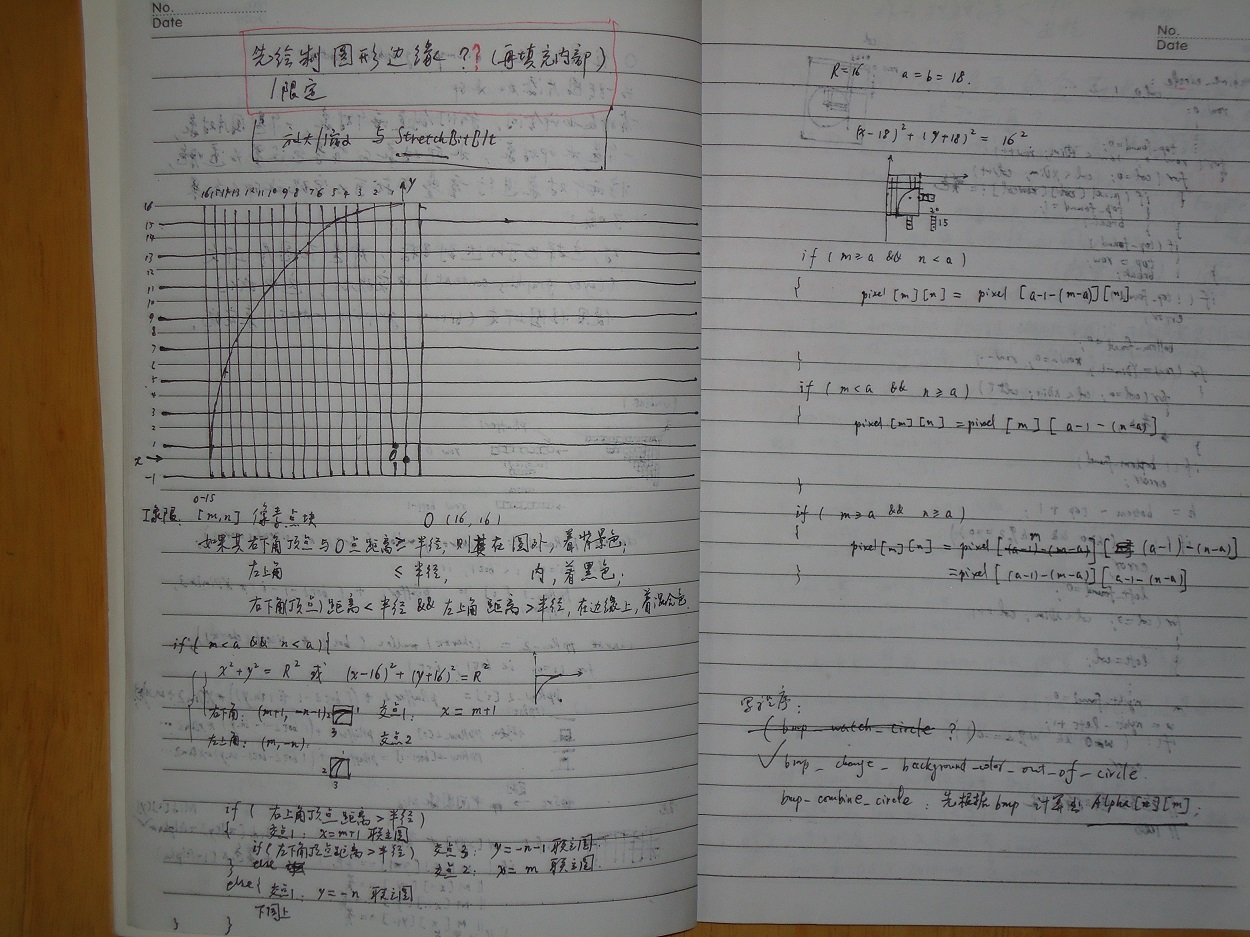 No.
Date
先绘制图形边缘??(再填充内部)
/限定
放大/缩放 与 StretchBitBlt
16 15 14 13 12 11 10 9 8 7 6 5 4 3 2 1 y
16
15
14
13
12
11
10
9
8
7
6
5
4
3
2
1
x 0
-1
0-15
I象限: [m,n] 像素点块 O (16, 16)
如果其右下角顶点与O点距离≥半径,则其在圆外,着背景色;
左上角 ≤半径, 内,着黑色;
右下角(顶点)距离<半径 && 左上角距离>半径,在边缘上,着混合色.
if ( m<a && n<a ){
x²+y² = R² 或 (x-16)²+(y+16)² = R²
右下角: (m+1, -n-1) 2 1 3 交点1: x = m+1
左上角: (m, -n) 交点2
1
2
3
if ( 右上角顶点距离>半径)
{ 交点1: x=m+1 联立圆
if (左下角顶点距离>半径) 交点3: y=-n-1 联立圆
} else 交点2: x=m 联立圆
else{ 交点1: y=-n 联立圆
下同上
} }
No.
Date
R=16 a=b=18.
(x-18)²+(y+18)² = 16²
20
15
if ( m≥a && n<a )
{ pixel [m][n] = pixel [a-1-(m-a)][n]
}
if ( m<a && n≥a )
{ pixel [m][n] = pixel [m][ a-1-(n-a)]
}
if ( m≥a && n≥a )
{ pixel[m][n] = pixel [m][ (a-1)-(n-a)]
} =pixel [ (a-1)-(m-a)][ a-1-(n-a)]
写程序:
(bmp_watch_circle ?)
✓ bmp_change_background_color_out_of_circle.
bmp_combine_circle: 先根据bmp 计算出 Alpha[n][m];